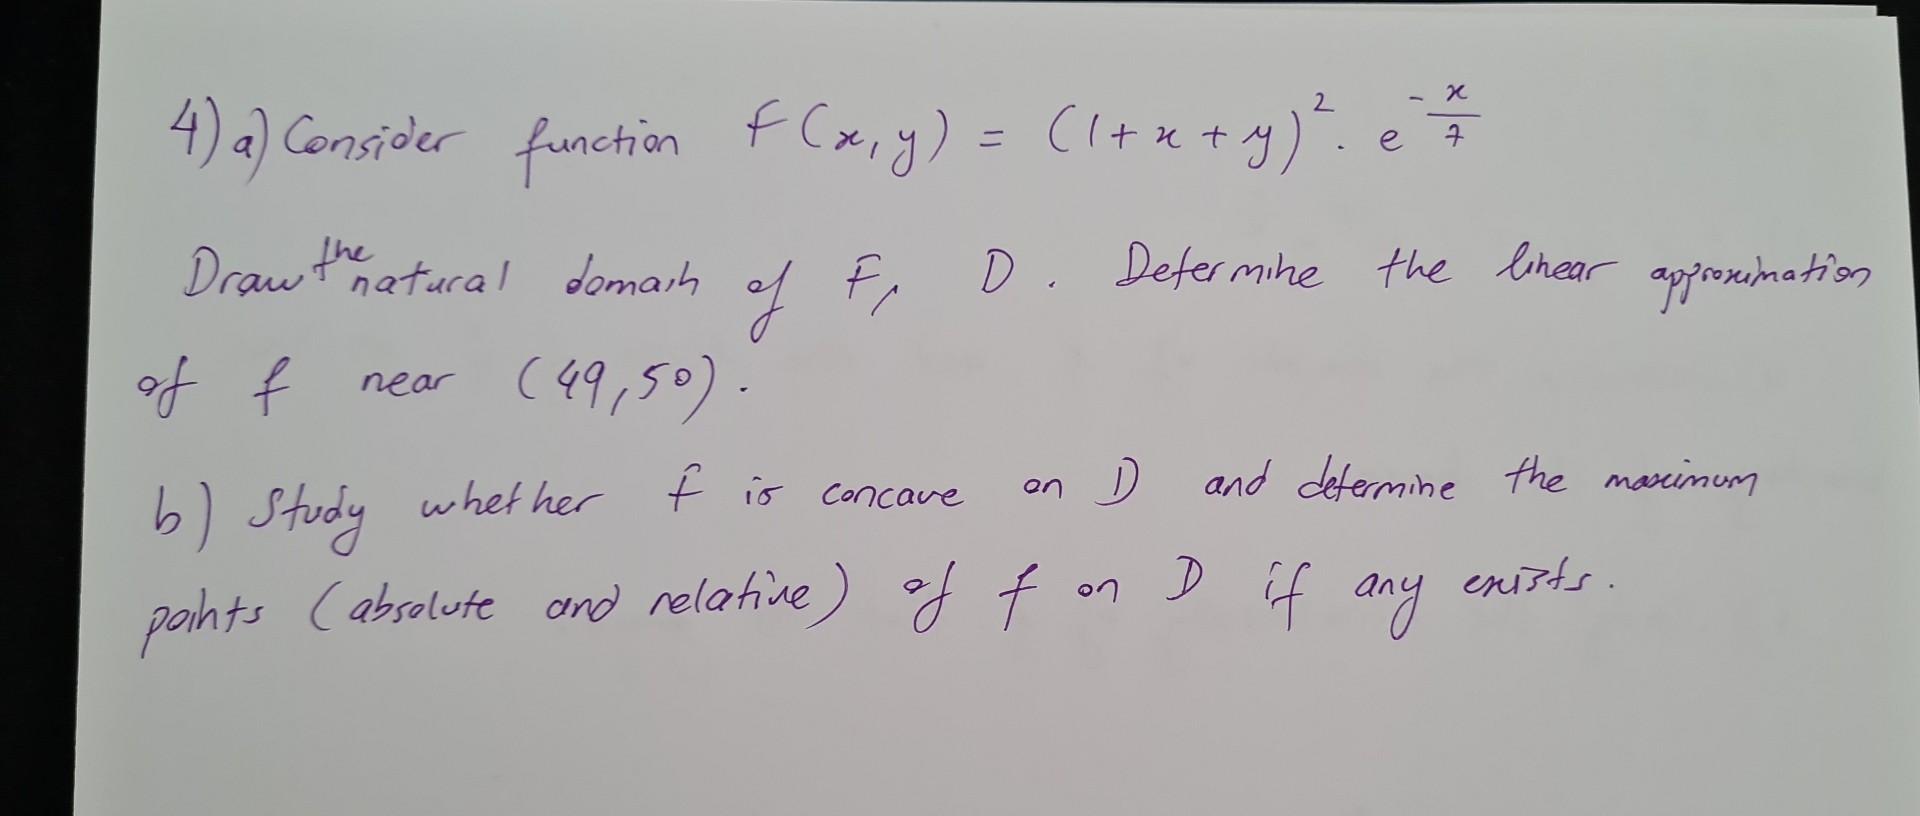 4) a) Consider function f(x,y) = (1+x+y)². e^(-x/7)
Draw the natural domain of F, D. Determine the linear approximation
of f near (49,50).
b) Study whether f is concave on D and determine the maximum
points (absolute and relative) of f on D if any exists.